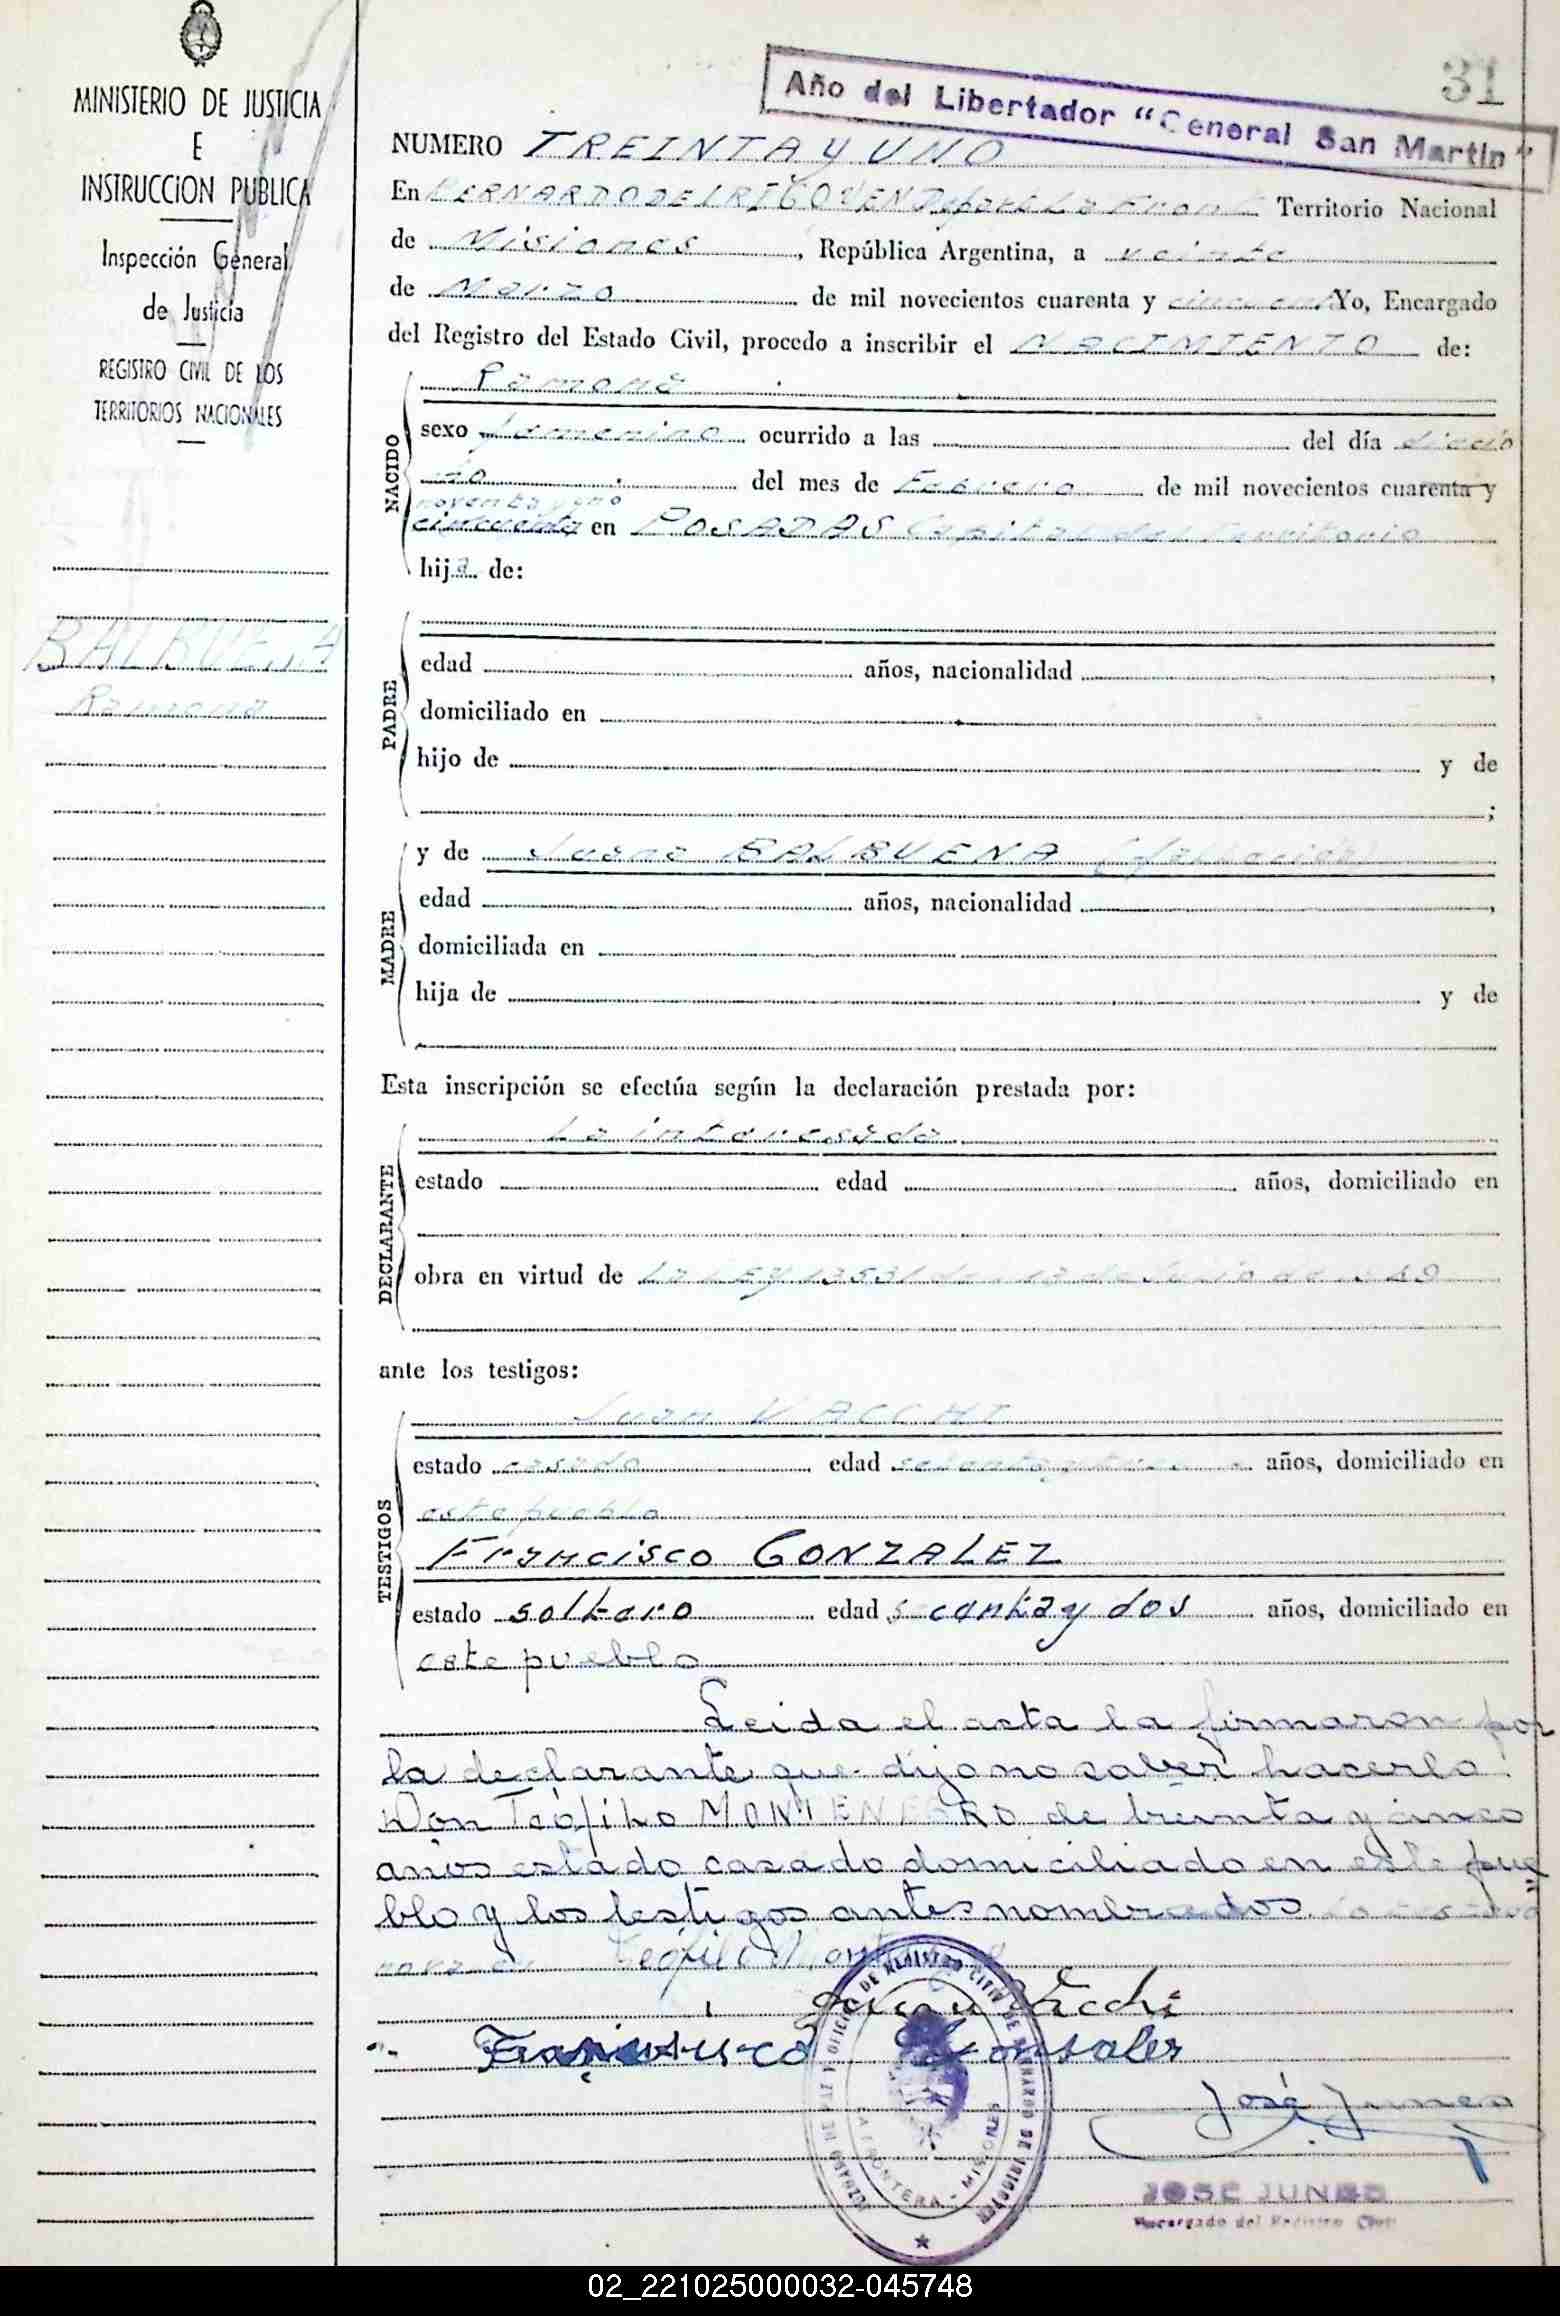 MINISTERIO DE JUSTICIA
E
INSTRUCCION PUBLICA
Inspección General
de Justicia
REGISTRO CIVIL DE LOS
TERRITORIOS NACIONALES
BALBUENA
Ramona
31
Año del Libertador "General San Martin"
NUMERO TREINTA y UNO
En BERNARDO DE IRIGOYEN Dpto de La Front Territorio Nacional
de Misiones, República Argentina, a veinte
de Marzo de mil novecientos cuarenta y cincuenta Yo, Encargado
del Registro del Estado Civil, procedo a inscribir el NACIMIENTO de:
NACIDO
Ramona
sexo femenino ocurrido a las del día diecio
cho del mes de Febrero de mil novecientos cuarenta y
noventa y uno
cincuenta en POSADAS Capital del Territorio
hija de:
PADRE
edad años, nacionalidad ,
domiciliado en
hijo de y de
;
MADRE
y de Juana BALBUENA (fallecida)
edad años, nacionalidad ,
domiciliada en
hija de y de
Esta inscripción se efectúa según la declaración prestada por:
DECLARANTE
La interesada
estado edad años, domiciliado en
obra en virtud de La LEY de Julio de
ante los testigos:
TESTIGOS
Juan VACCHI
estado casado edad años, domiciliado en
este pueblo
Francisco GONZALEZ
estado soltero edad años, domiciliado en
este pueblo
Leida el acta la firmaron por
la declarante que dijo no saber hacerlo
Don Teófilo MONTENEGRO de treinta y cinco
años estado casado domiciliado en este pue
blo y los testigos antes nombrados.
Teófilo
Juan Vacchi
Francisco Gonsales
José Juned
JOSE JUNED
Encargado del Registro Civil
JUZGADO DE PAZ Y OFICINA DE REGISTRO CIVIL DE BERNARDO DE IRIGOYEN
LA FRONTERA - MISIONES
02_221025000032-045748